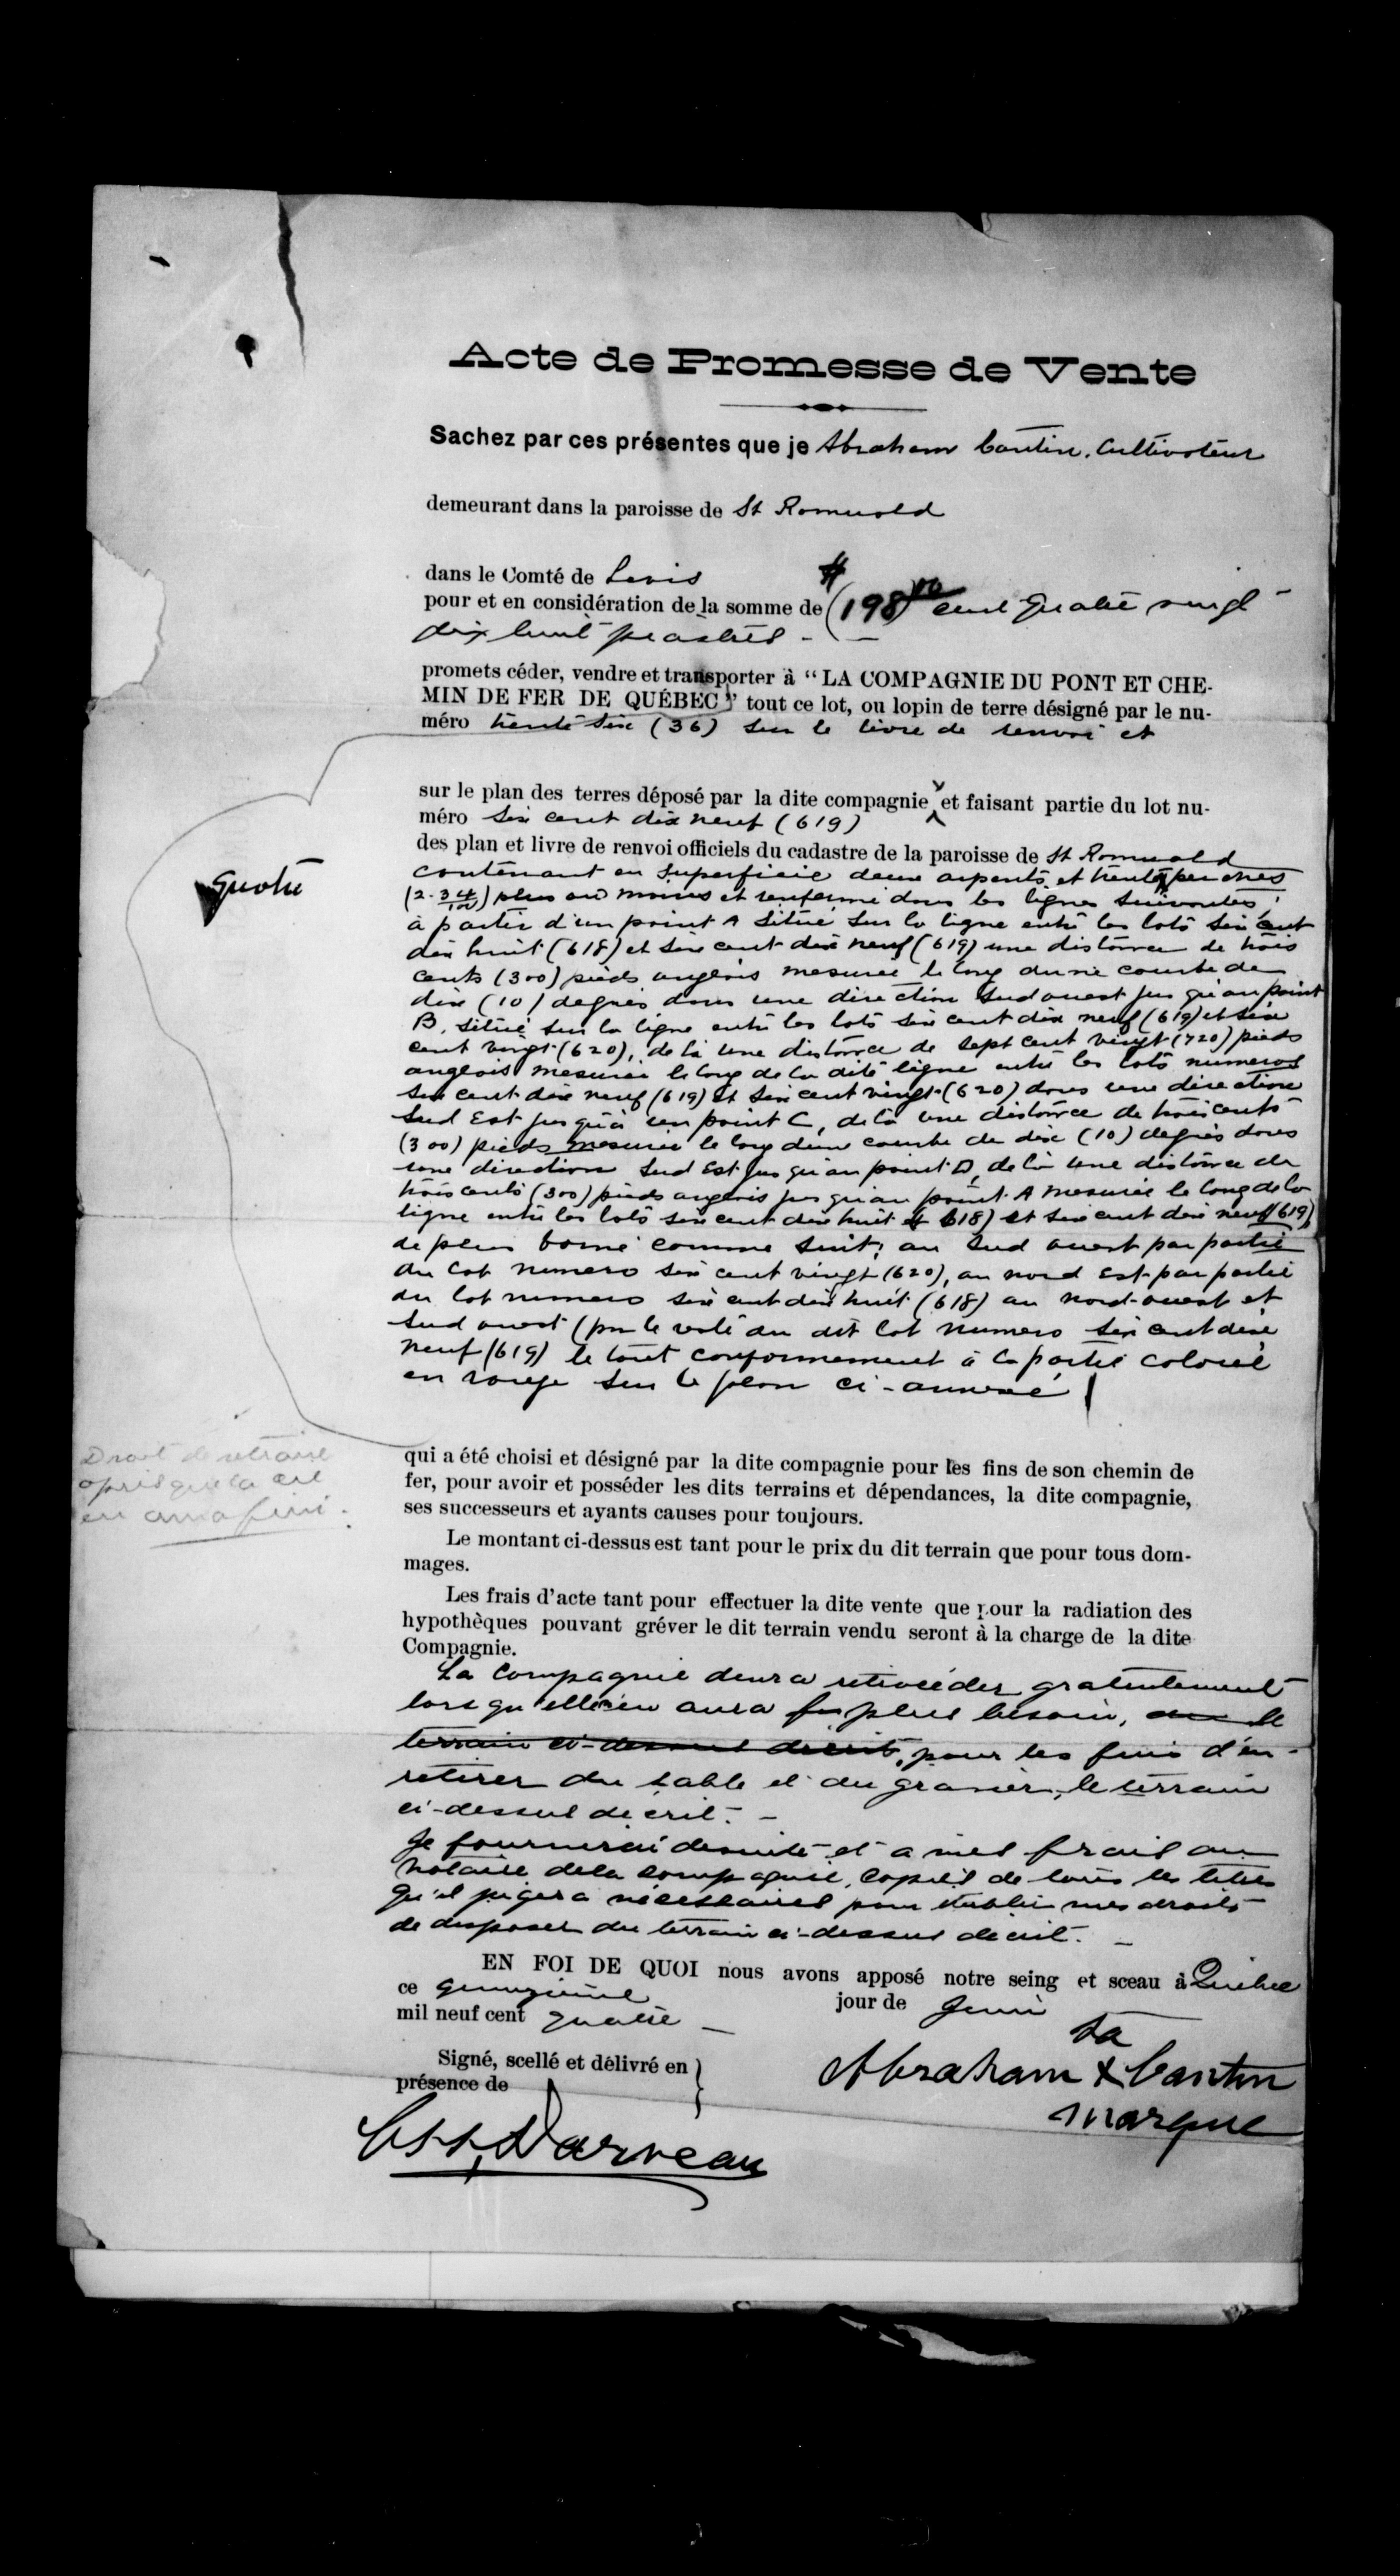 Acte de Promesse de Vente
Sachez par ces présentes que je Abraham Cantin, Cultivateur
demeurant dans la paroisse de St Romuald
dans le Comté de Levis
pour et en considération de la somme de $ (198 00) cent quatre vingt
dix huit piastres -
promets céder, vendre et transporter à "LA COMPAGNIE DU PONT ET CHE-
MIN DE FER DE QUÉBEC" tout ce lot, ou lopin de terre désigné par le nu-
méro trente six (36) sur le livre de renvoi et
sur le plan des terres déposé par la dite compagnie et faisant partie du lot nu-
méro six cent dix neuf (619)
des plan et livre de renvoi officiels du cadastre de la paroisse de St Romuald
quatre
contenant en superficie deux arpents et trente perches
(2. 34/100) plus ou moins et renfermé dans les lignes suivantes;
à partir d'un point A situé sur la ligne entre les lots six cent
dix huit (618) et six cent dix neuf (619) une distance de trois
cents (300) pieds anglais mesurée le long d'une courbe de
dix (10) degrés dans une direction Sud ouest jusqu'au point
B, situé sur la ligne entre les lots six cent dix neuf (619) et six
cent vingt (620), de là une distance de sept cent vingt (720) pieds
anglais mesurée le long de la dite ligne entre les lots numeros
six cent dix neuf (619) et six cent vingt (620) dans une direction
Sud Est jusqu'à un point C, de là une distance de trois cents
(300) pieds mesurée le long d'une courbe de dix (10) degrés dans
une direction Sud Est jusqu'au point D, de là une distance de
trois cents (300) pieds anglais jusqu'au point A mesurée le long de la
ligne entre les lots six cent dix huit (618) et six cent dix neuf (619)
de plus borné comme suit; au Sud ouest par partie
du lot numero six cent vingt (620), au nord Est par partie
du lot numero six cent dix huit (618) au nord-ouest et
Sud ouest par le reste du dit lot numero six cent dix
neuf (619) le tout conformement à la partie colorée
en rouge sur le plan ci-annexé
Droit de
après que la cie
en aura fini.
qui a été choisi et désigné par la dite compagnie pour les fins de son chemin de
fer, pour avoir et posséder les dits terrains et dépendances, la dite compagnie,
ses successeurs et ayants causes pour toujours.
Le montant ci-dessus est tant pour le prix du dit terrain que pour tous dom-
mages.
Les frais d'acte tant pour effectuer la dite vente que pour la radiation des
hypothèques pouvant gréver le dit terrain vendu seront à la charge de la dite
Compagnie.
La Compagnie devra retrocéder gratuitement
lorsqu'elle n'en aura plus besoin, le
terrain ci-dessus décrit, pour les fins d'en
retirer du sable et du gravier, le terrain
ci-dessus décrit. -
Je fournirai de suite et a mes frais au
notaire de la compagnie, copies de tous les titres
qu'il jugera nécessaires pour établir mes droits
de disposer du terrain ci-dessus décrit. -
EN FOI DE QUOI nous avons apposé notre seing et sceau à Québec
ce quinzième jour de Juin
mil neuf cent quatre -
Signé, scellé et délivré en
présence de
sa
Abraham X Cantin
marque
Darveau